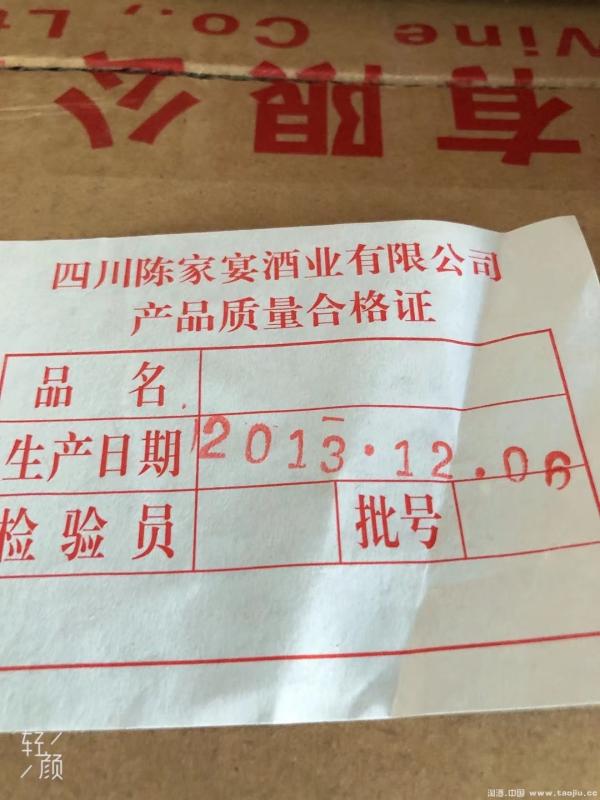 Wine Co., Lt
有限公
四川陈家宴酒业有限公司
产品质量合格证
品 名
生产日期 2013.12.06
检验员 批号
轻颜
淘酒.中国 www.taojiu.cc